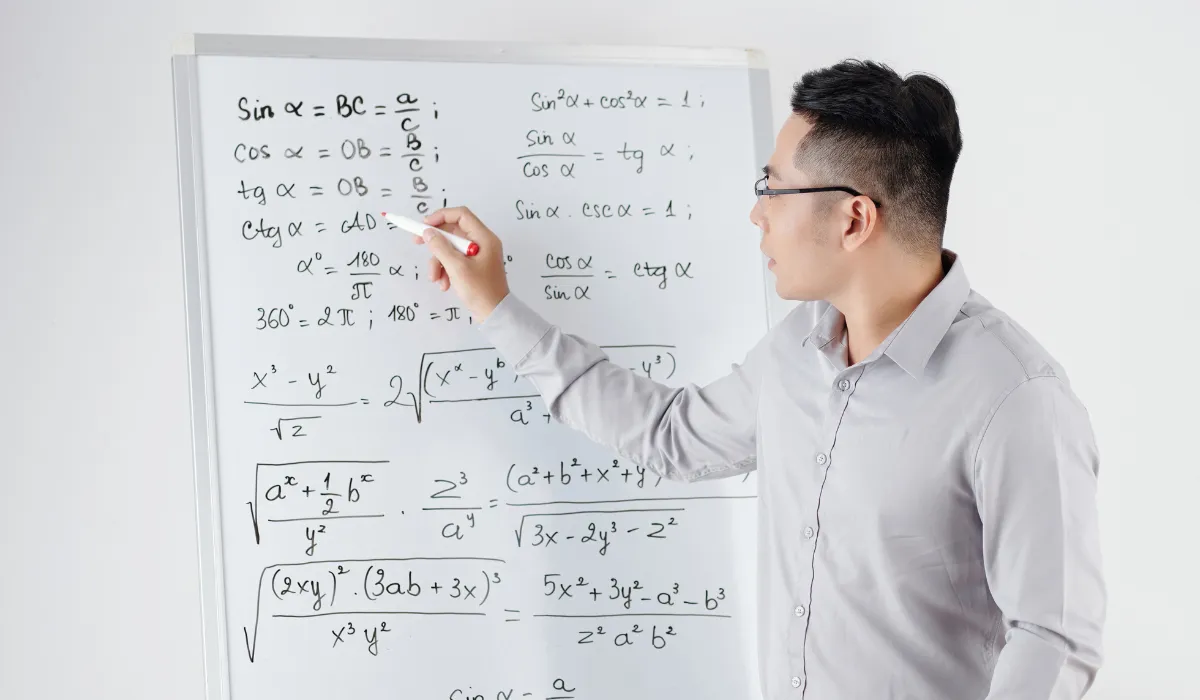 Sin α = BC = a/c ;
cos α = OB = B/c ;
tg α = OB = B/c ;
ctg α = AD =
α° = 180/π α ;
360° = 2π ; 180° = π ,
sin²α + cos²α = 1 ;
Sin α / Cos α = tg α ;
Sin α . csc α = 1 ;
cos α / sin α = ctg α
x³ - y² / √z = 2√(x^α - y^b - y³) / a³ +
√a^x + 1/2 b^x / y² . z³ / a^y = (a² + b² + x² + y / √3x - 2y³ - z²
√(2xy)² . (3ab + 3x)³ / x³ y² = 5x² + 3y² - a³ - b³ / z² a² b²
Sin α = a